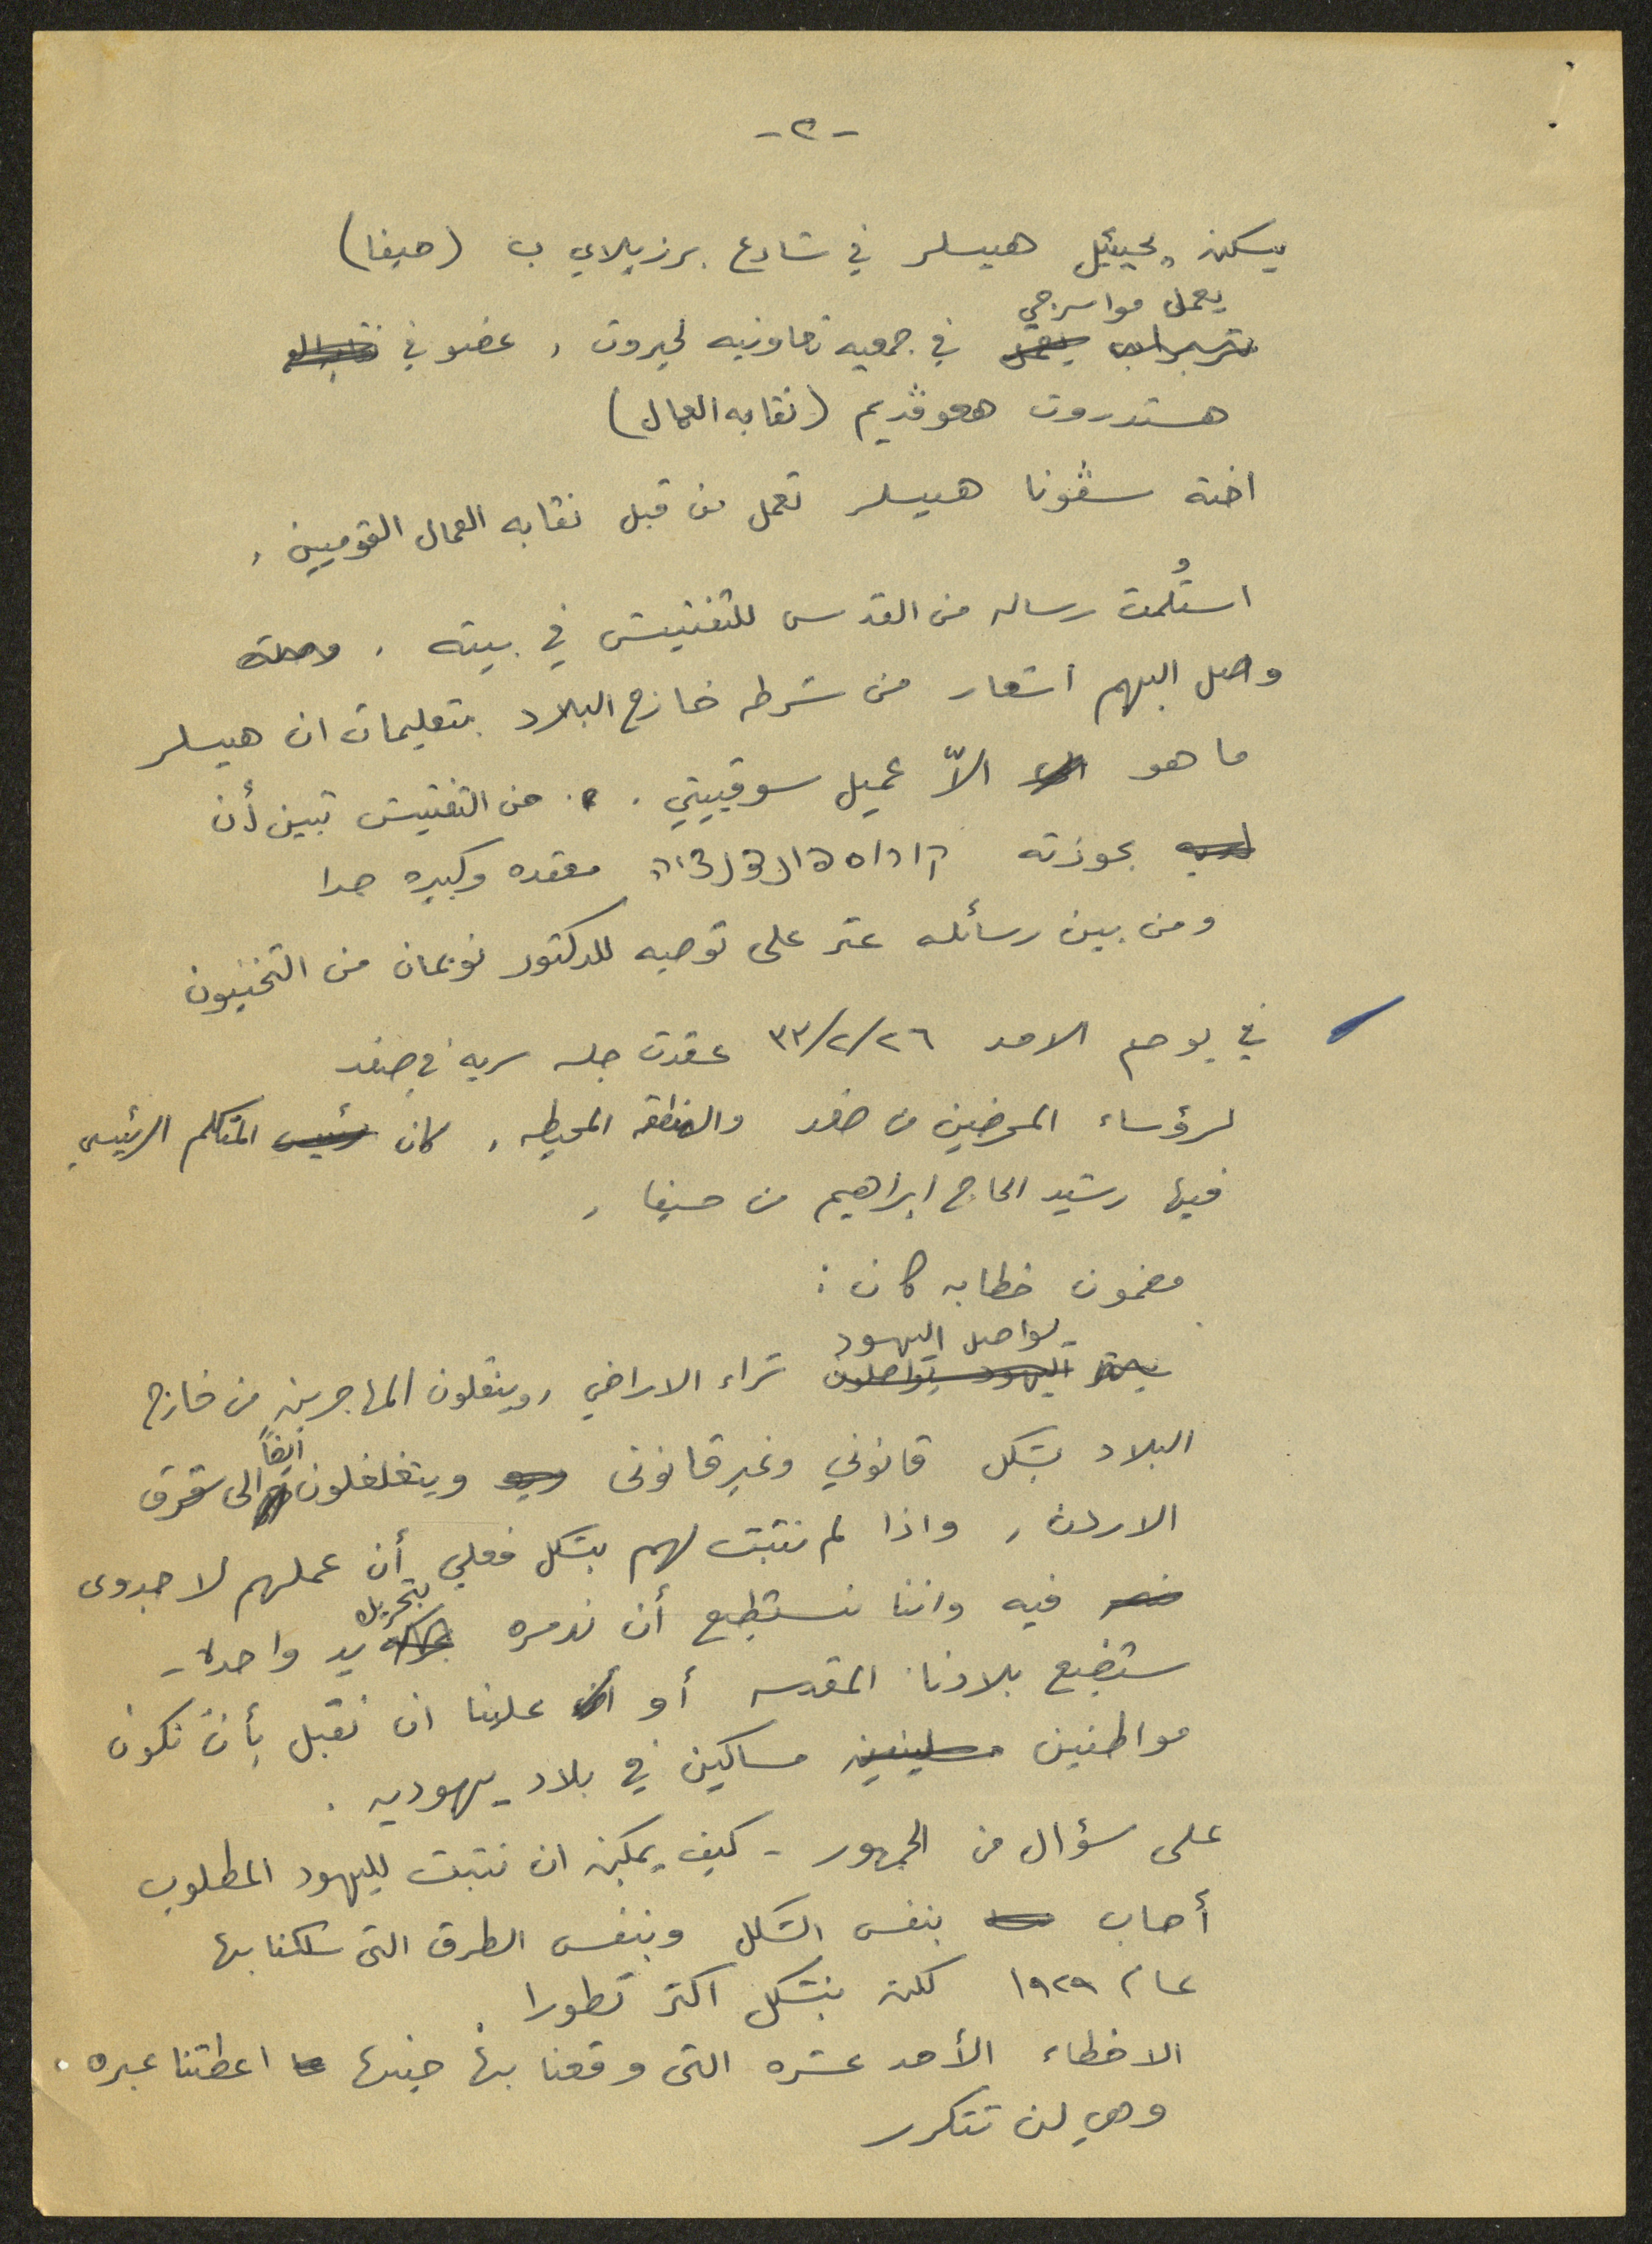 -٢-
يسكن يحيئيل هيسلر في شارع برزيلاي ب (حيفا)
يعمل مواسرجي
في جمعيه تعاونيه لحيروت , عضو في
هستدروت هعوڤديم (نقابه العمال)
اخته سڤونا هيسلر تعمل من قبل نقابه العمال القوميين ,
استُلمت رساله من القدس للتفتيش في بيته .
وصل اليهم اشعار من شرطه خارج البلاد بتعليمات ان هيسلر
ما هو الاّ عميل سوڤييتي . من التفتيش تبين أن
بحوزته معقده وكبيره جدا
ومن بين رسائله عثر على توصيه للدكتور نويمان من التخنيون
في يوم الاحد ٣٣/٢/٢٦ عقدت جلسه سريه في صفد
لرؤساء المحرضين من صفد والمنطقه المحيطه , كان رئيس المتكلم الرئيسي
فيها رشيد الحاج ابراهيم من حيفا ,
مضمون خطابه كان :
يواصل اليهود
اليهود يواصلون شراء الاراضي , وينقلون المهاجرين من خارج
البلاد بشكل قانوني وغير قانوني ويتغلغلون أيضاً الى شرق
الاردن , واذا لم نثبت لهم بشكل فعلي أن عملهم لا جدوى
فيه واننا نستطيع أن ندمره بتحريك يد واحده -
ستضيع بلادنا المقدسه أو علينا ان نقبل بأن نكون
مواطنين مساكين في بلاد يهوديه .
على سؤال من الجمهور - كيف يمكن ان نثبت لليهود المطلوب
أجاب بنفس الشكل وبنفس الطرق التي سلكنا بها
عام ١٩٢٩ لكن بشكل اكثر تطورا .
الاخطاء الأحد عشره التي وقعنا بها حينها اعطتنا عبره .
وهي لن تتكرر